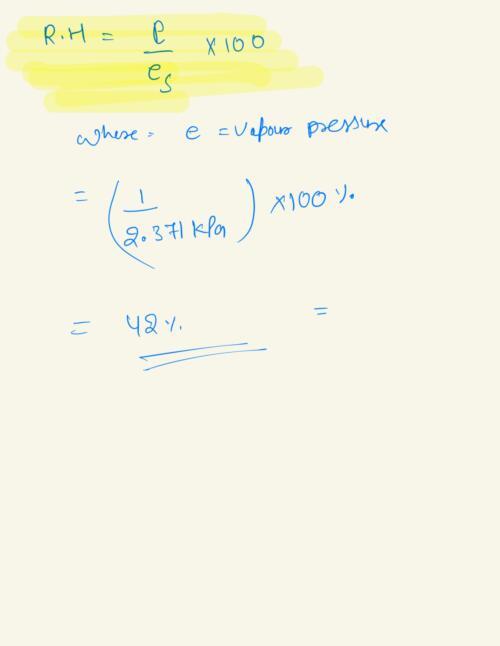 R.H = e/e_s × 100
where = e = vapour pressure
= (1/2.371 kpa) × 100 %.
= 42 %. =